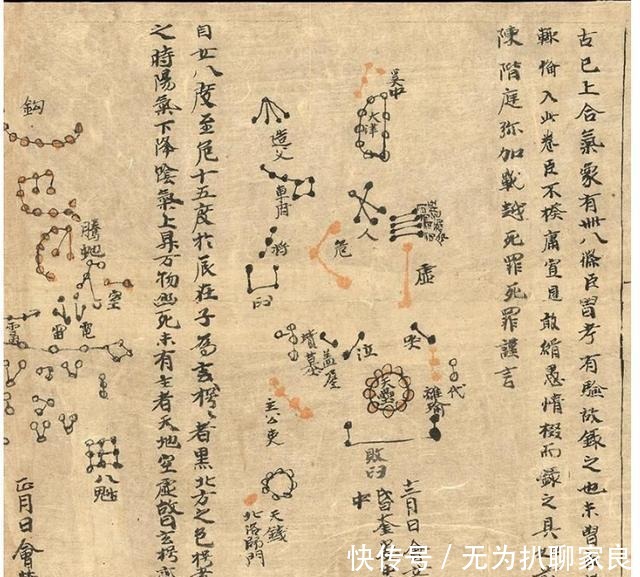 古已上合氣象有卌八條臣曾考有驗故錄之也未曾
輒備入此卷臣不揆庸冝見敢緝愚情掇而錄之具
陳階庭弥加戰越死罪死罪謹言
天津
人
危
虛
哭
泣
代
離瑜
天壘
敗臼
蓋屋
墳墓
造父
車府
杵
臼
主公吏
天錢
北落師門
十二月日會
昏奎
中
自女八度至危十五度於辰在子為玄枵者黑北方之色枵者
之時陽氣下降陰氣上昇万物幽死未有生者天地空虛故曰玄枵
鈎
騰蛇
空
電
雷
八魁
正月日會
快传号 / 无为扒聊家良